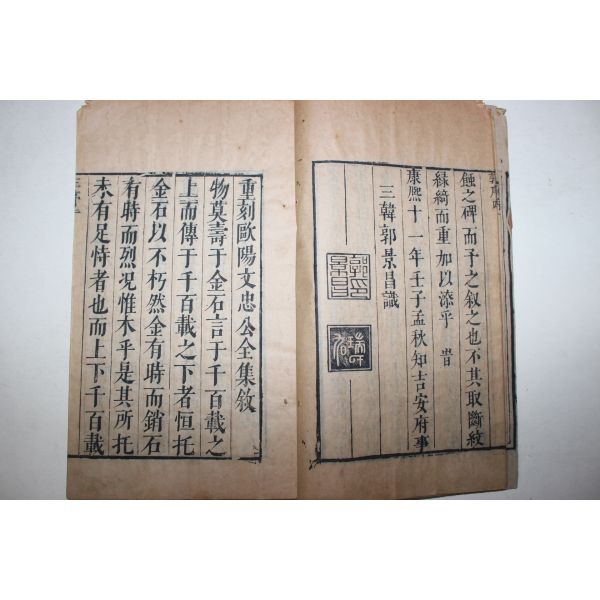 蝕之碑而予之叙之也不其取斷紋
綠綺而重加以漆乎 昔
康熙十一年壬子孟秋知吉安府事
三韓郭景昌識
郭印景昌
重刻歐陽文忠公全集敘
物莫壽于金石言于千百載之
上而傳于千百載之下者恒托
金石以不朽然金有時而銷石
有時而烈况惟木乎是其所托
未有足恃者也而上下千百載